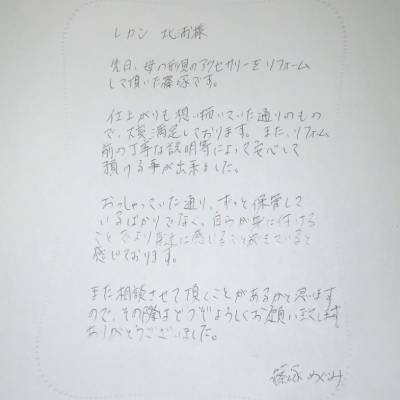 レカン 北浦様
先日、母の形見のアクセサリーをリフォーム
して頂いた篠塚です。
仕上がりも想い描いていた通りのもの
で、大変満足しております。また、リフォーム
前の丁寧な説明等によって安心して
預ける事が出来ました。
おっしゃっていた通り、ずっと保管して
いるばかりでなく、自らが身に付ける
ことでより身近に感じること
感じております。
また相談させて頂くことがあるかと思います
ので、その際はどうぞよろしくお願い致します
ありがとうございました。
篠塚 めぐみ